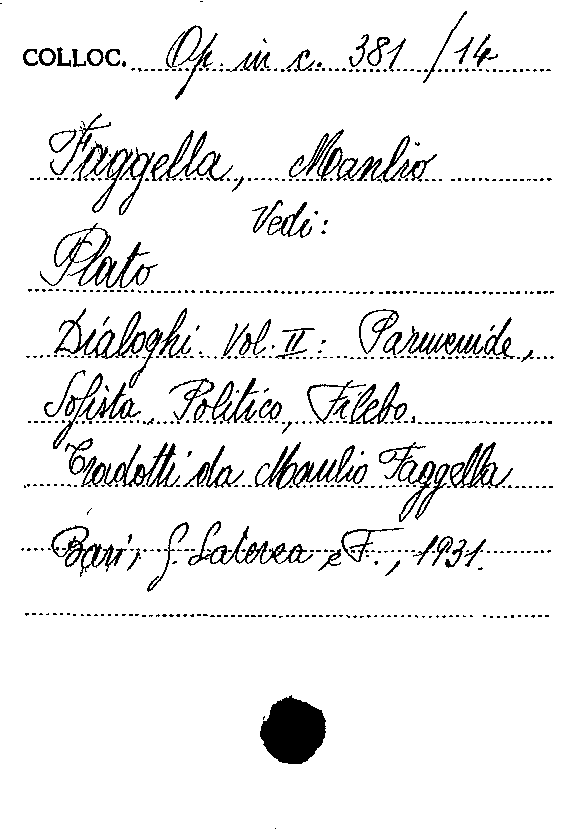 COLLOC. Op. in c. 381 / 14
Faggella, Manlio
Vedi:
Plato
Dialoghi. Vol. II: Parmenide,
Sofista, Politico, Filebo.
Tradotti da Manlio Faggella
Bari, G. Laterza e F., 1931.